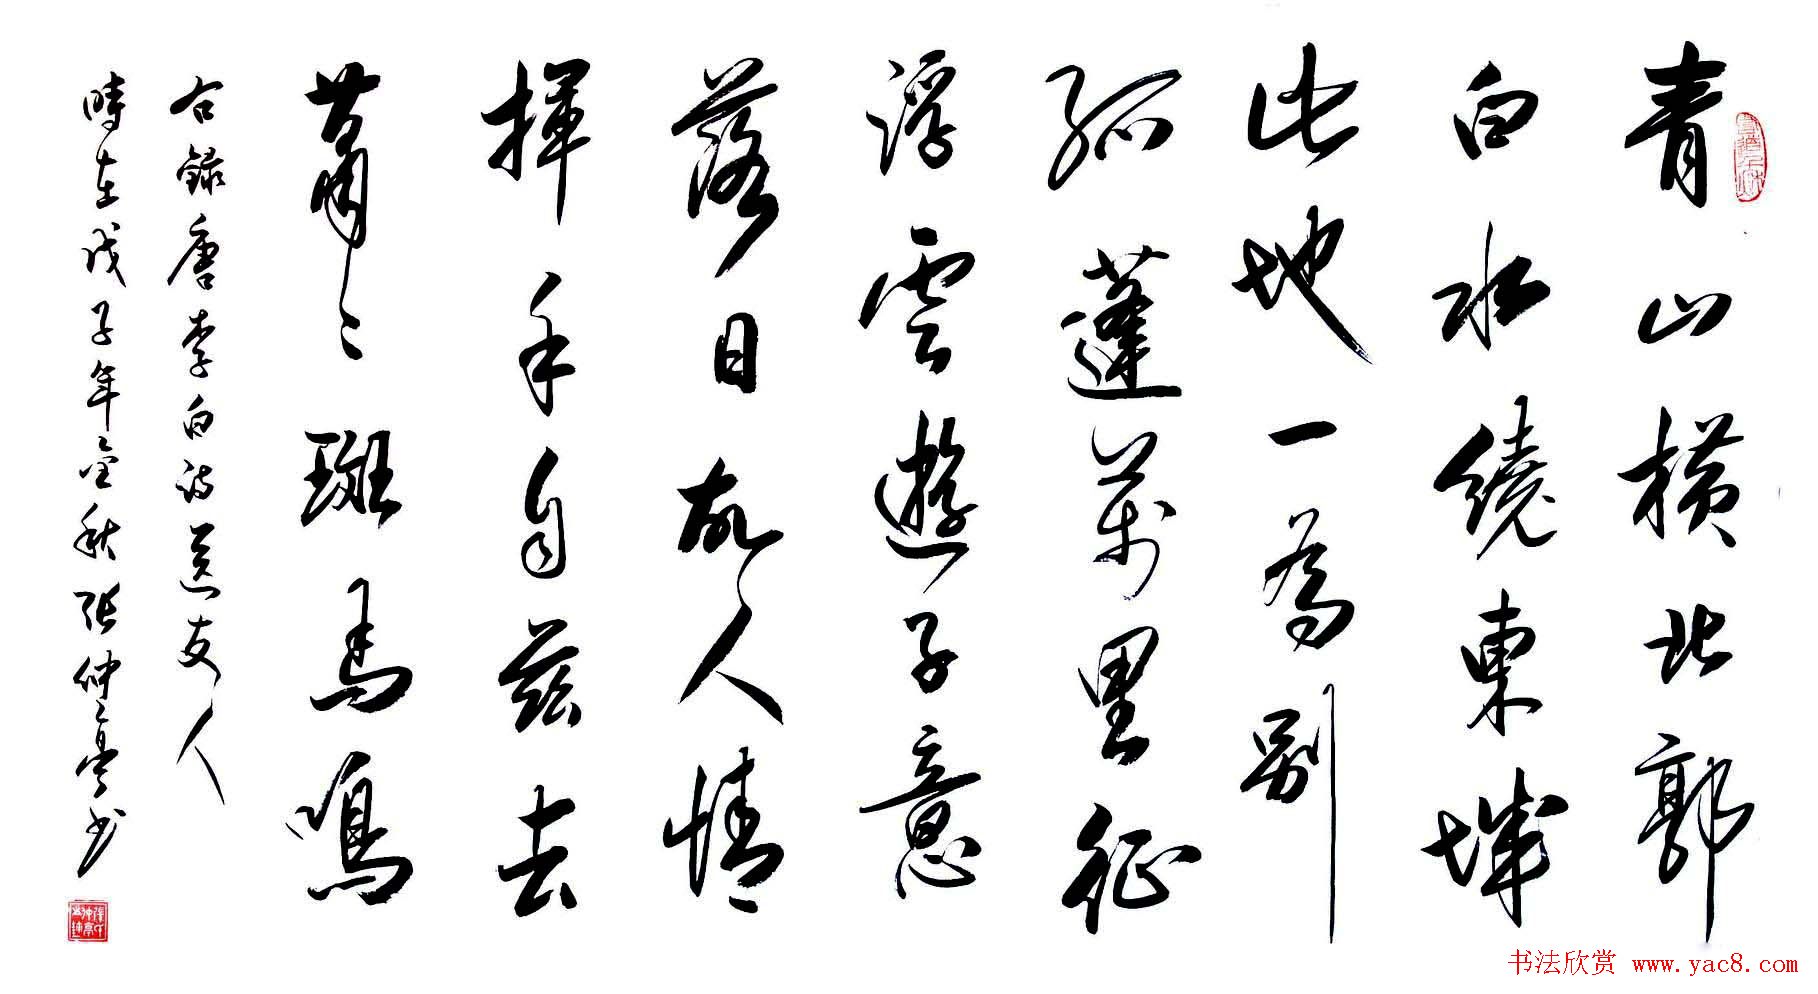 青山橫北郭
白水繞東城
此地一為別
孤蓬萬里征
浮雲遊子意
落日故人情
揮手自茲去
蕭〻班馬鳴
右録唐李白詩送友人
時在戊子年金秋張仲亭書
书法欣赏 www.yac8.com